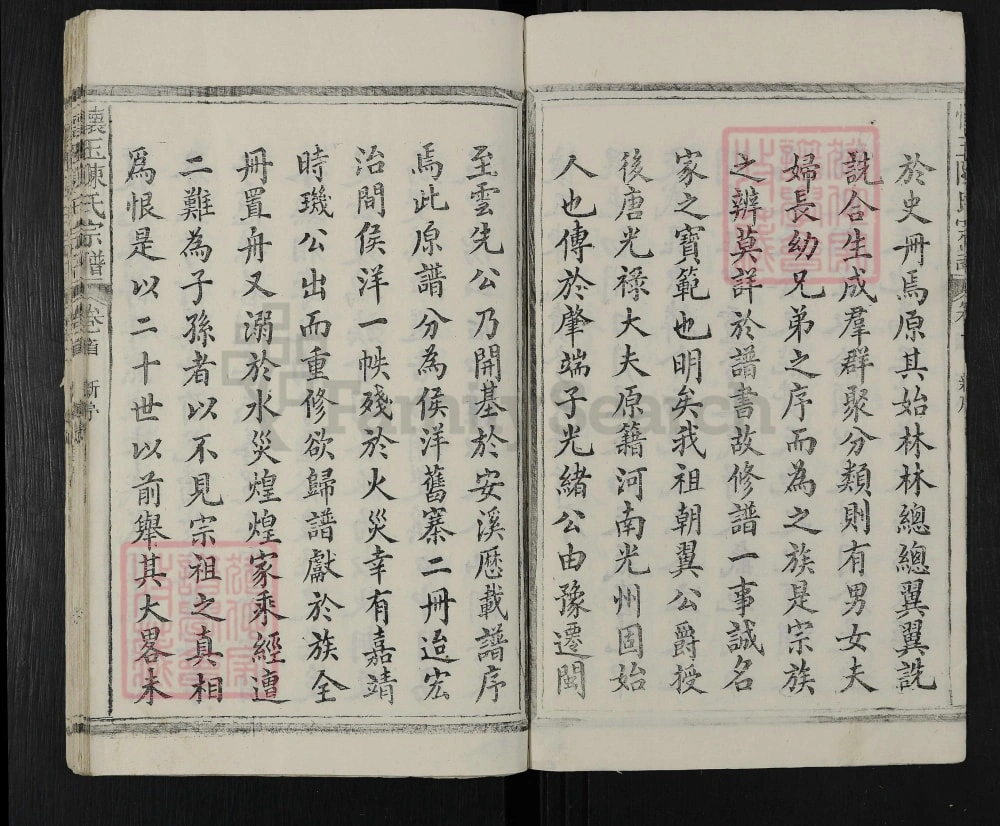 於史冊焉原其始林林總總翼翼詵
詵合生成羣群聚分類則有男女夫
婦長幼兄弟之序而為之族是宗族
之辨莫詳於譜書故修譜一事誠名
家之寶範也明矣我祖朝翼公爵授
後唐光祿大夫原籍河南光州固始
人也傳於肇端子光緒公由豫遷閩
至雲先公乃開基於安溪歷載譜序
焉此原譜分為侯洋舊寨二冊迨宏
治間侯洋一帙殘於火災幸有嘉靖
時璣公出而重修欲歸譜獻於族全
冊置舟又溺於水災煌煌家乘經遭
二難為子孫者以不見宗祖之真相
爲恨是以二十世以前舉其大畧未
懷玉陳氏宗譜
卷首
新序
FamilySearch